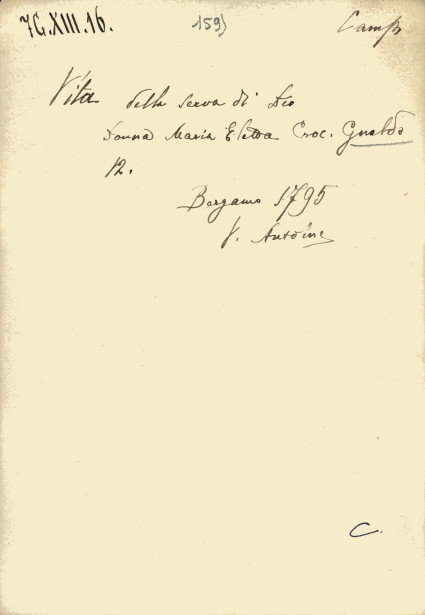 7G.XIII.16.
159)
Camp
Vita della serva di Dio
Donna Maria Eletta Croc. Gualdo
12.
Bergamo 1795
V. Antoine
C.